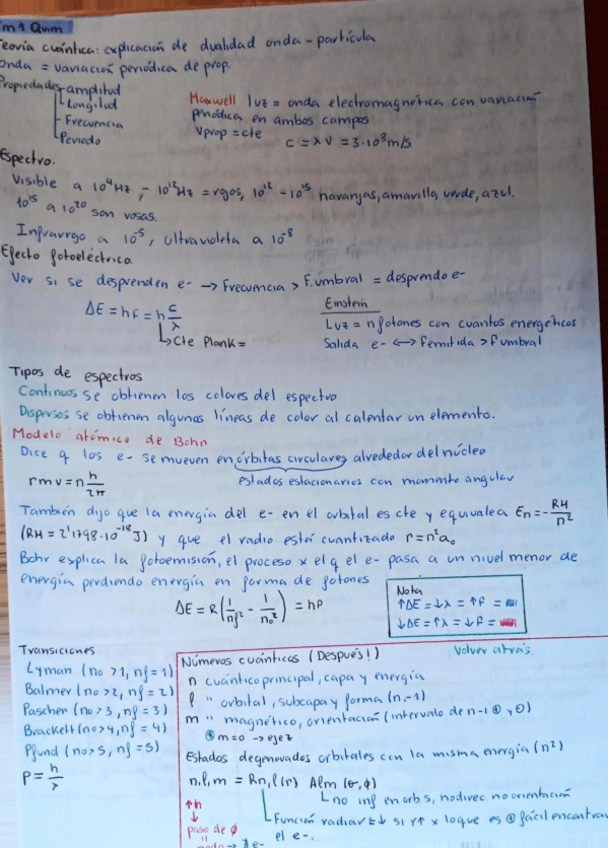 m 1 Quim
Teoría cuántica: explicación de dualidad onda-partícula
Onda = variación periódica de prop.
Propiedades
amplitud
Longitud
Frecuencia
Periodo
Maxwell luz = onda electromagnética con variación
periódica en ambos campos
Vprop = cte
c = λν = 3·10⁸ m/s
Espectro:
Visible a 10⁴Hz, - 10¹²Hz = rojos, 10¹² - 10¹⁵ naranjas, amarillo, verde, azul.
10¹⁵ a 10²⁰ son rosas.
Infrarrojo a 10⁻⁵, ultravioleta a 10⁻⁸
Efecto fotoeléctrico.
Ver si se desprenden e- → Frecuencia > F.umbral = desprendo e-
ΔE = hf = h c/λ
↳ Cte Plank =
Einstein
Luz = n fotones con cuantos energéticos
Salida e- ⟷ Femitida > Fumbral
Tipos de espectros
Continuos se obtienen los colores del espectro
Dispersos se obtienen algunas líneas de color al calentar un elemento.
Modelo atómico de Bohn
Dice q los e- se mueven en órbitas circulares alrededor del núcleo
estados estacionarios con momento angular
rmv = n h/2π
También dijo que la energía del e- en el orbital es cte y equivale a En = - RH/n²
(RH = 2'1798·10⁻¹⁸J) y que el radio está cuantizado r = n²a₀
Bohr explica la fotoemisión, el proceso x el q el e- pasa a un nivel menor de
energía perdiendo energía en forma de fotones
ΔE = R(1/nf² - 1/no²) = hf
Nota
↑ΔE = ↓λ = ↑f =
↓ΔE = ↑λ = ↓f =
Transiciones
Lyman (no > 1, nf = 1)
Balmer (no > 2, nf = 2)
Paschen (no > 3, nf = 3)
Brackett (no > 4, nf = 4)
Pfund (no > 5, nf = 5)
P = h/λ
Números cuánticos (Después!)
Volver atrás
n cuántico principal, capa y energía
l " orbital, subcapa y forma (n,-1)
m " magnético, orientación (intervalo de n-1 ⊕ y ⊖)
m=0 → eje z
Estados degenerados orbitales con la misma energía (n²)
n,l,m = Rn,l(r) Alm (σ,ϕ)
↳ no inf en orb.s, no direc. no orientación
↳ Función radial si r↑ x lo que es ⊕ fácil encontrar
el e-.
↑n
↓
paso de ϕ